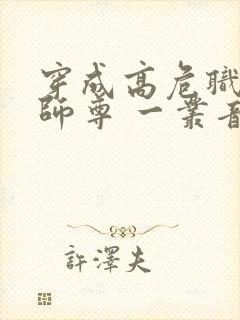 穿成高危職
師尊 一叢音
許澤夫